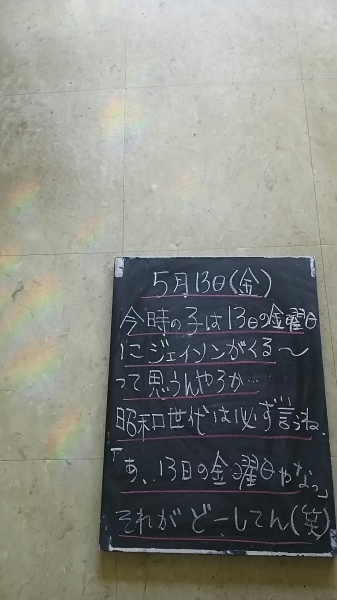 5月13日(金)
今時の子は13日の金曜日
にジェイソンがくる〜
って思うんやろか…
昭和世代は必ず言うね、
「あ、、13日の金曜日やなっ」
それがどーしてん(笑)